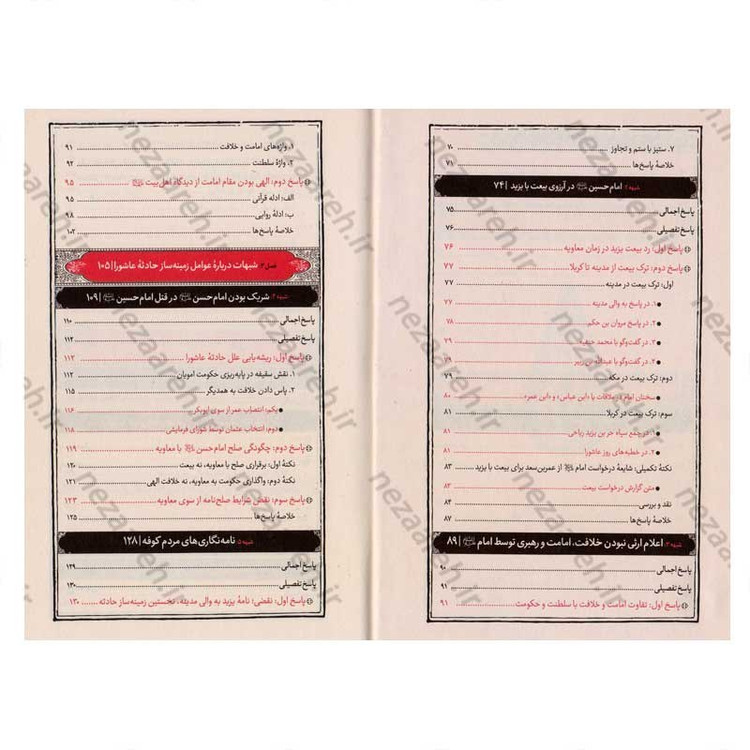 ۷. ستیز با ستم و تجاوز ........ ۷۰
خلاصهٔ پاسخ‌ها ........ ۷۱
شبهه ۲: امام حسین در آرزوی بیعت با یزید | ۷۴
پاسخ اجمالی ........ ۷۵
پاسخ تفصیلی ........ ۷۶
پاسخ اول: رد بیعت یزید در زمان معاویه ........ ۷۶
پاسخ دوم: ترک بیعت از مدینه تا کربلا ........ ۷۷
اول: ترک بیعت در مدینه ........ ۷۷
۱. در پاسخ به والی مدینه ........ ۷۷
۲. در پاسخ مروان بن حکم ........ ۷۸
۳. در گفت‌وگو با محمد حنفیه ........ ۷۹
۴. در گفت‌وگو با عبدالله بن زبیر ........ ۷۹
دوم: ترک بیعت در مکه ........ ۷۹
سخنان امام در ملاقات با «ابن عباس» و «ابن عمر» ........ ۸۰
سوم: ترک بیعت در کربلا ........ ۸۱
۱. در جمع سپاه حر بن یزید ریاحی ........ ۸۱
۲. در خطبه‌های روز عاشورا ........ ۸۱
نکتهٔ تکمیلی: شایعهٔ درخواست امام از عمربن‌سعد برای بیعت با یزید ........ ۸۳
متن گزارش درخواست بیعت ........ ۸۳
نقد و بررسی ........ ۸۴
خلاصهٔ پاسخ‌ها ........ ۸۷
شبهه ۳: اعلام ارثی نبودن خلافت، امامت و رهبری توسط امام | ۸۹
پاسخ اجمالی ........ ۹۰
پاسخ تفصیلی ........ ۹۱
پاسخ اول: تفاوت امامت و خلافت با سلطنت و حکومت ........ ۹۱
۱. واژه‌های امامت و خلافت ........ ۹۱
۲. واژهٔ سلطنت ........ ۹۲
پاسخ دوم: الهی بودن مقام امامت از دیدگاه اهل‌بیت ........ ۹۵
الف: ادلهٔ قرآنی ........ ۹۵
ب: ادلهٔ روایی ........ ۹۸
خلاصهٔ پاسخ‌ها ........ ۱۰۲
شبهات دربارهٔ عوامل زمینه‌ساز حادثهٔ عاشورا | ۱۰۵
شریک بودن امام حسن در قتل امام حسین | ۱۰۹
پاسخ اجمالی ........ ۱۱۰
پاسخ تفصیلی ........ ۱۱۲
پاسخ اول: ریشه‌یابی علل حادثهٔ عاشورا ........ ۱۱۲
۱. نقش سقیفه در پایه‌ریزی حکومت امویان ........ ۱۱۲
۲. پاس دادن خلافت به همدیگر ........ ۱۱۵
یکم: انتصاب عمر از سوی ابوبکر ........ ۱۱۶
دوم: انتخاب عثمان توسط شورای فرمایشی ........ ۱۱۸
پاسخ دوم: چگونگی صلح امام حسن با معاویه ........ ۱۱۹
نکتهٔ اول: برقراری صلح با معاویه، نه بیعت ........ ۱۲۰
نکتهٔ دوم: واگذاری حکومت به معاویه، نه خلافت الهی ........ ۱۲۱
پاسخ سوم: نقض شرایط صلح‌نامه از سوی معاویه ........ ۱۲۳
خلاصهٔ پاسخ‌ها ........ ۱۲۵
نامه‌نگاری‌های مردم کوفه | ۱۲۸
پاسخ اجمالی ........ ۱۲۹
پاسخ تفصیلی ........ ۱۳۰
پاسخ اول: نقضی: نامهٔ یزید به والی مدینه، نخستین زمینه‌ساز حادثه ........ ۱۳۰
nezaareh.ir